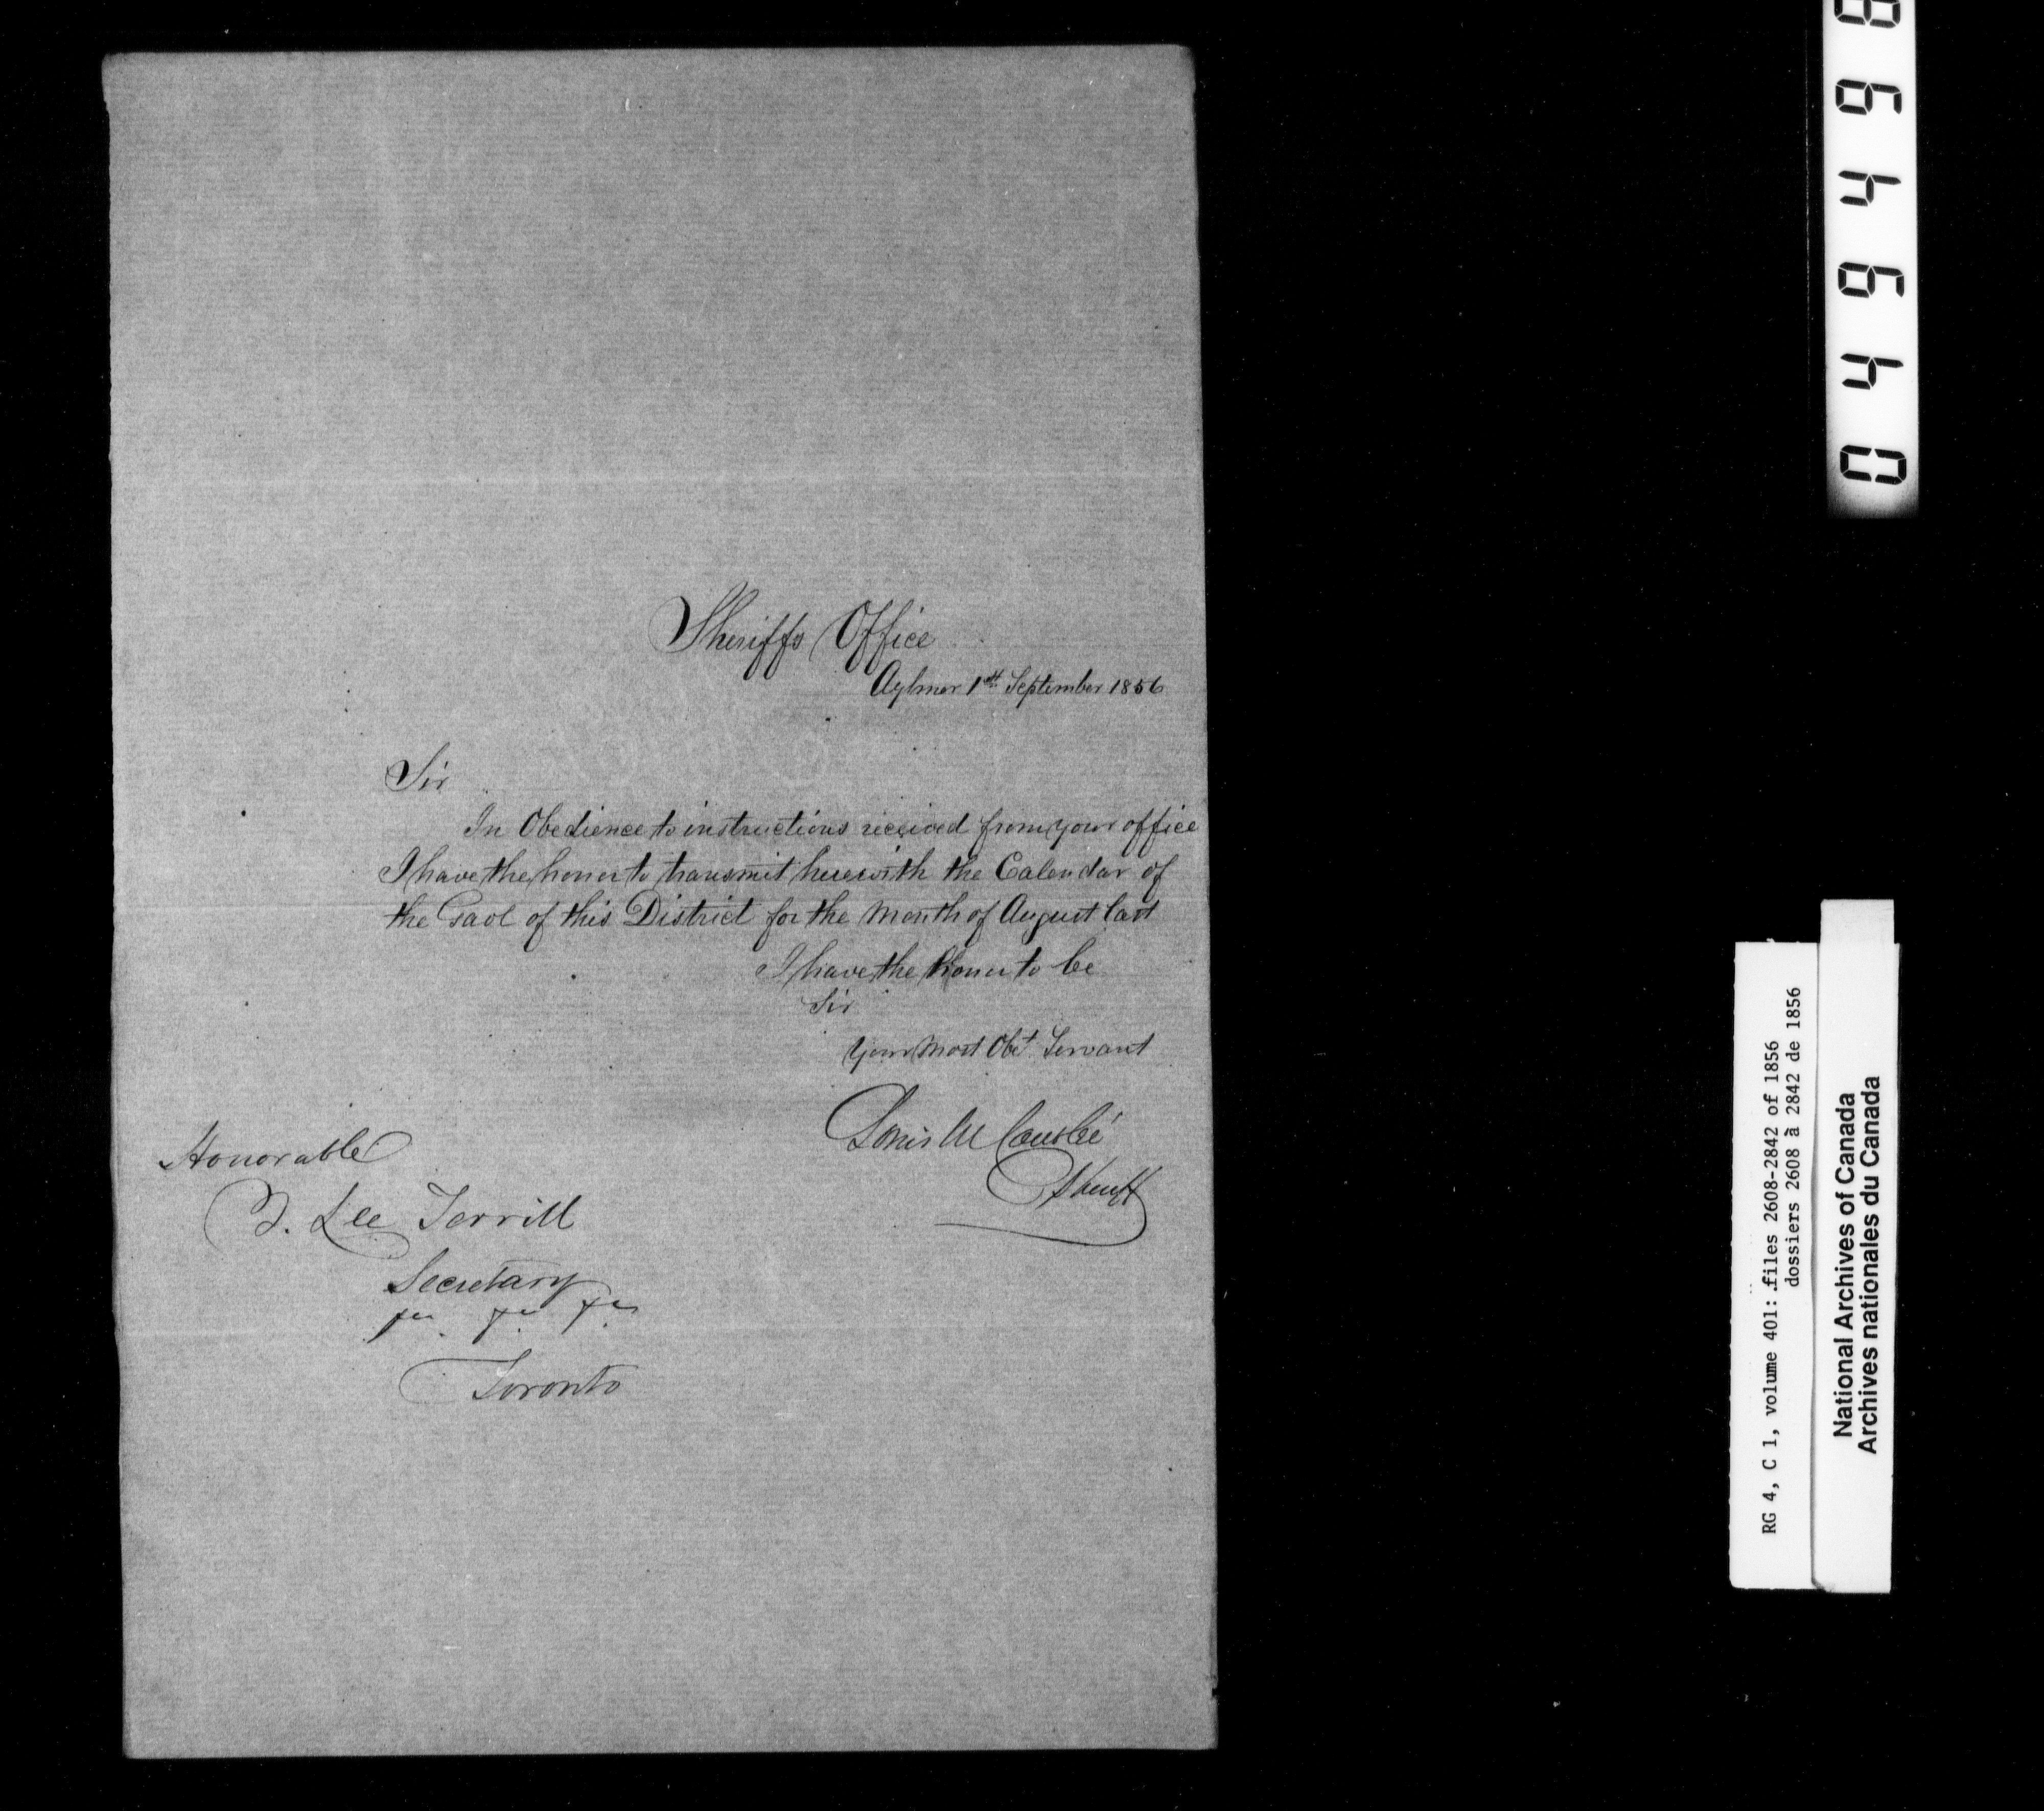 Sheriffs Office
Aylmer 1st September 1856
Sir
In Obedience to instructions received from your office
I have the honor to transmit herewith the Calendar of
the Gaol of this District for the Month of August last
I have the honor to be
Sir
Your Most Obt Servant
Louis M Coutlée
Sheriff
Honorable
T. Lee Terrill
Secretary
Toronto
RG 4, C 1, volume 401: files 2608-2842 of 1856
dossiers 2608 à 2842 de 1856
National Archives of Canada
Archives nationales du Canada